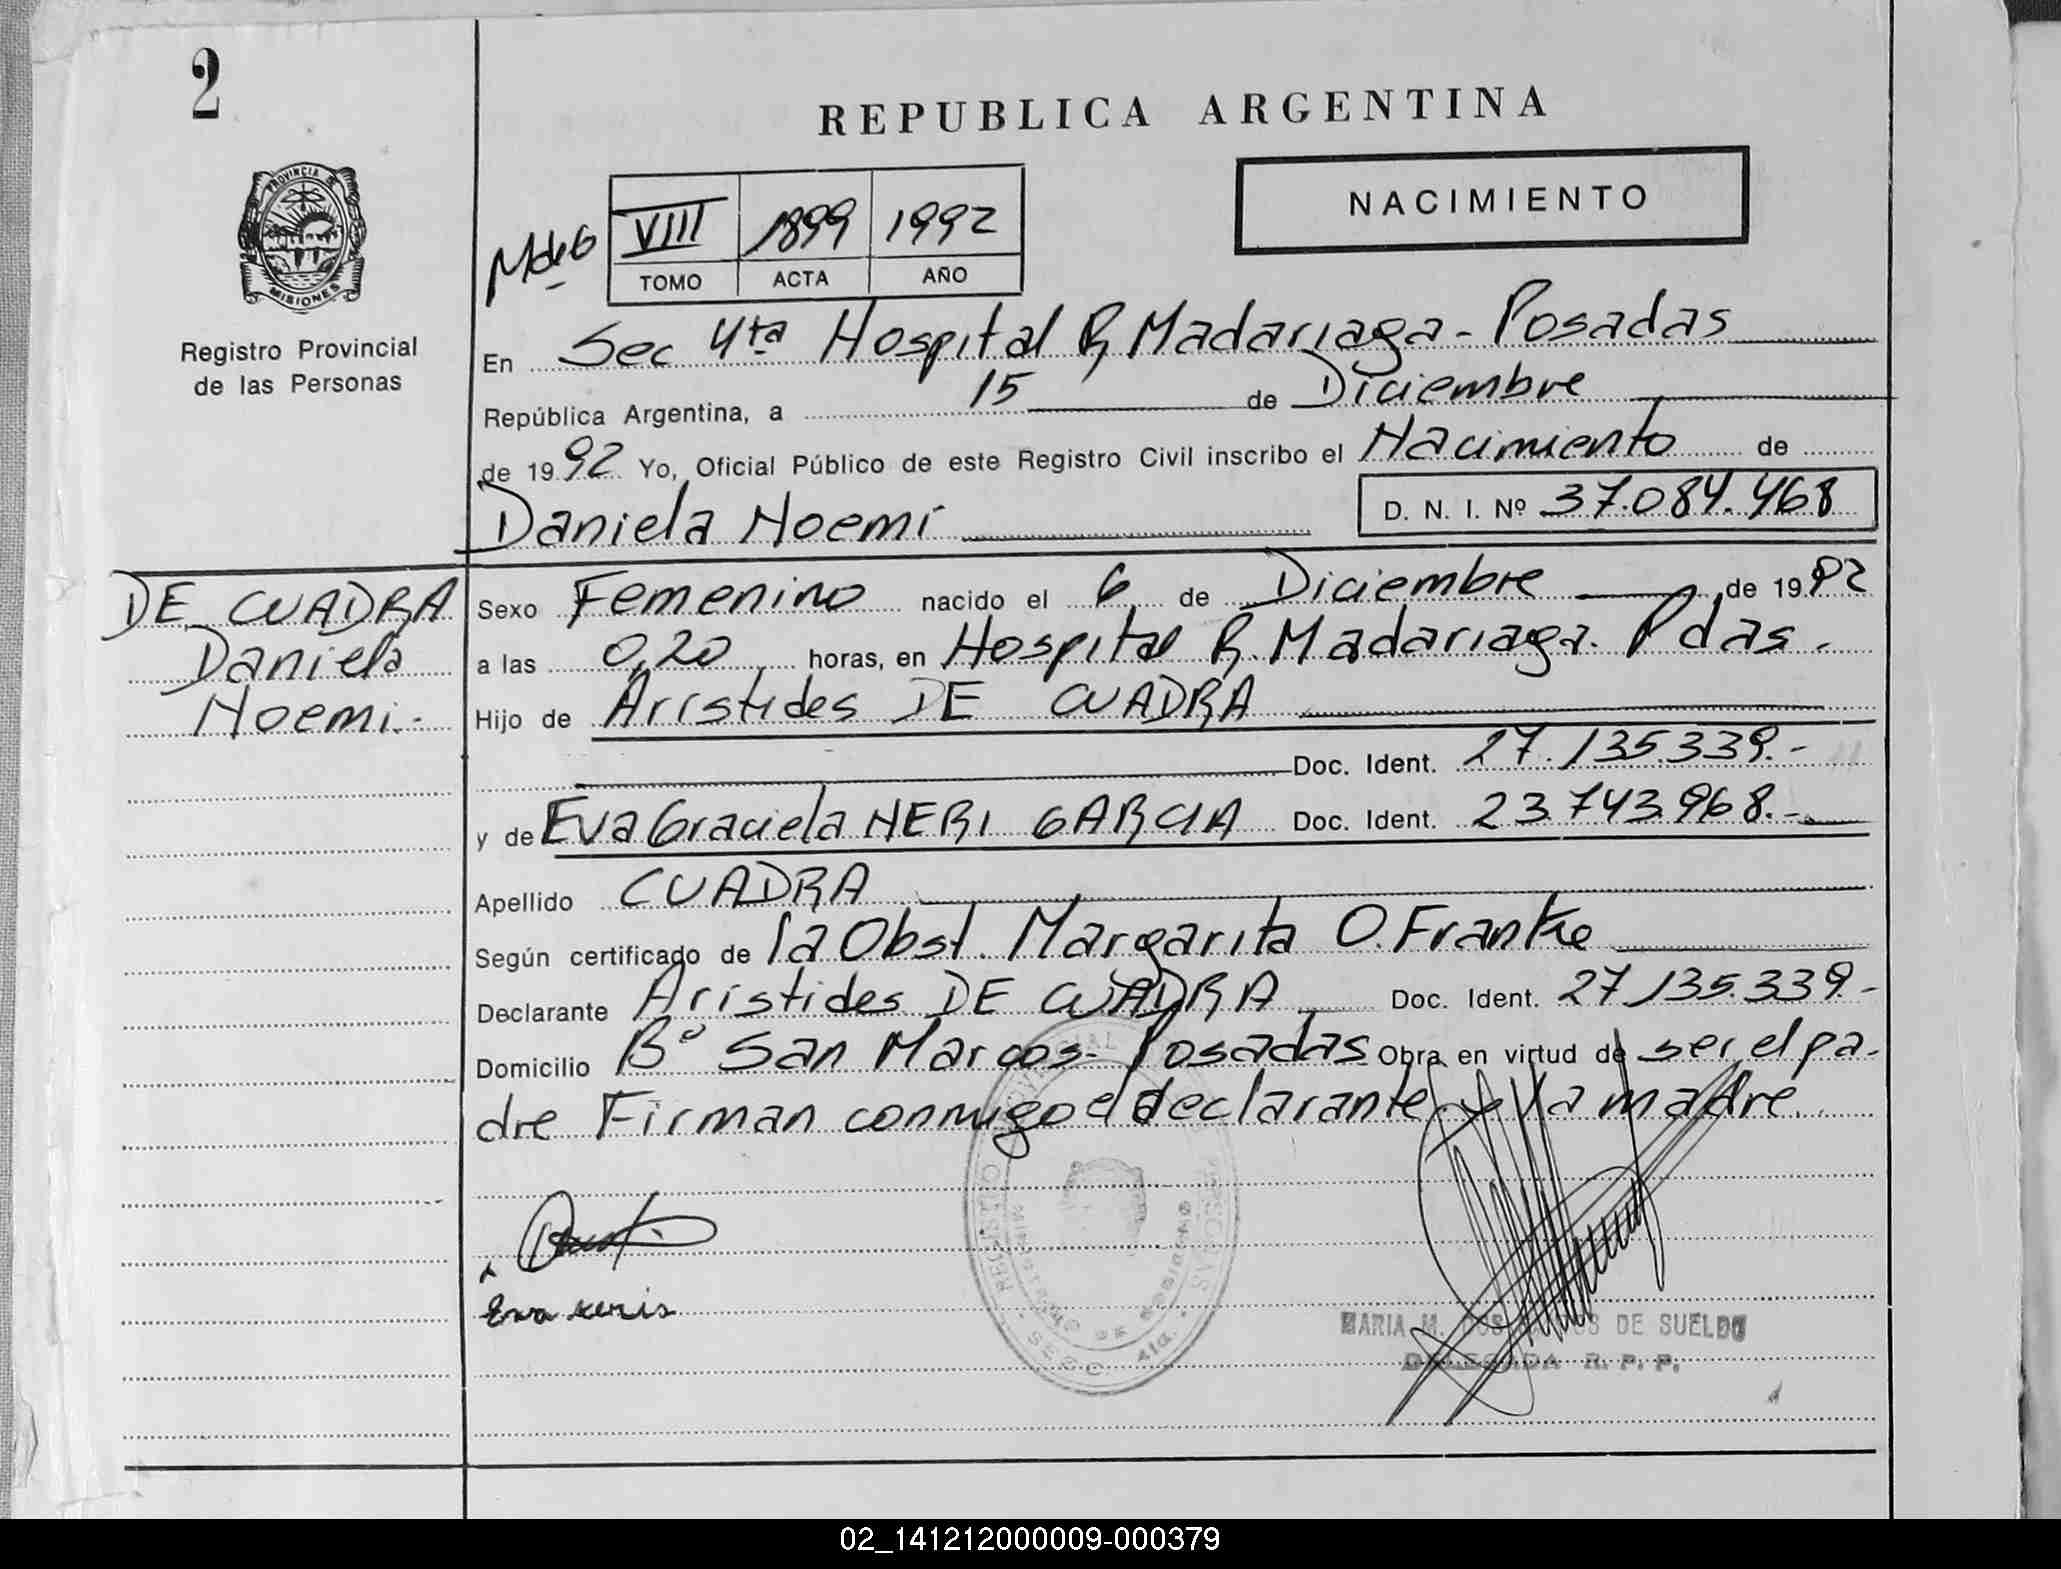 2
REPUBLICA ARGENTINA
NACIMIENTO
PROVINCIA DE
MISIONES
Registro Provincial
de las Personas
VIII 1899 1992
TOMO ACTA AÑO
En Sec 4ta Hospital R. Madariaga - Posadas
República Argentina, a 15 de Diciembre
de 1992 Yo, Oficial Público de este Registro Civil inscribo el Nacimiento de
Daniela Noemi D. N. I. Nº 37.084.468
DE CUADRA
Daniela
Noemi.-
Sexo Femenino nacido el 6 de Diciembre de 1992
a las 0,20 horas, en Hospital R. Madariaga. Pdas.
Hijo de Aristides DE CUADRA
Doc. Ident. 27.135.339.-
y de Eva Graciela NERI GARCIA Doc. Ident. 23.743.968.-
Apellido CUADRA
Según certificado de la Obst. Margarita O. Franke
Declarante Aristides DE CUADRA Doc. Ident. 27.135.339.-
Domicilio Bº San Marcos - Posadas Obra en virtud de ser el pa-
dre Firman conmigo el declarante y la madre.
Eva neris
REGISTRO PROVINCIAL DE LAS PERSONAS
SECC. 4ta.
MARIA M. DOS SANTOS DE SUELDO
DELEGADA R. P. P.
02_141212000009-000379